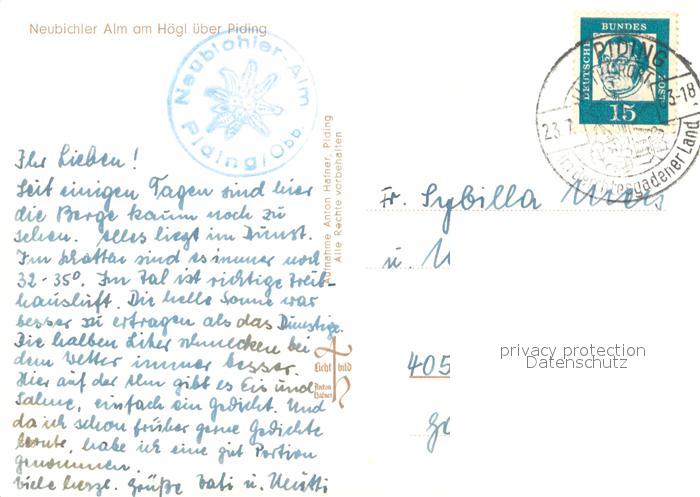 Neubichler Alm am Högl über Piding
Neubichler-Alm
Piding/Obb
DEUTSCHE BUNDESPOST
15
PIDING
LUFTKURORT
23.7.
3-18
im Berchtesgadener Land
Aufnahme Anton Hafner, Piding
Alle Rechte vorbehalten
Licht bild
Anton Hafner
Ihr Lieben!
Seit einigen Tagen sind hier
die Berge kaum noch zu
sehen. Alles liegt im Dunst.
Im Schatten sind es immer noch
32-35°. Im Tal ist richtige Treib-
hausluft. Die helle Sonne war
besser zu ertragen als das Dunstige.
Die halben Liter schmecken bei
dem Wetter immer besser.
Hier auf der Alm gibt es Eis und
Sahne, einfach ein Gedicht. Und
da ich schon früher gerne Gedichte
lernte, habe ich eine gut Portion
genommen.
Viele herzl. Grüße Vati u. Mutti
Fr. Sybilla
u.
405
privacy protection
Datenschutz